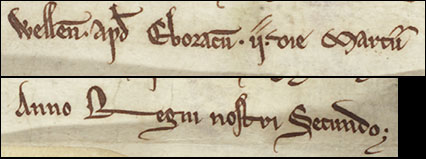 Wellen̄. ap̄d Eboracum̄. ij. die Marcij
Anno Regni nostri Secundo;